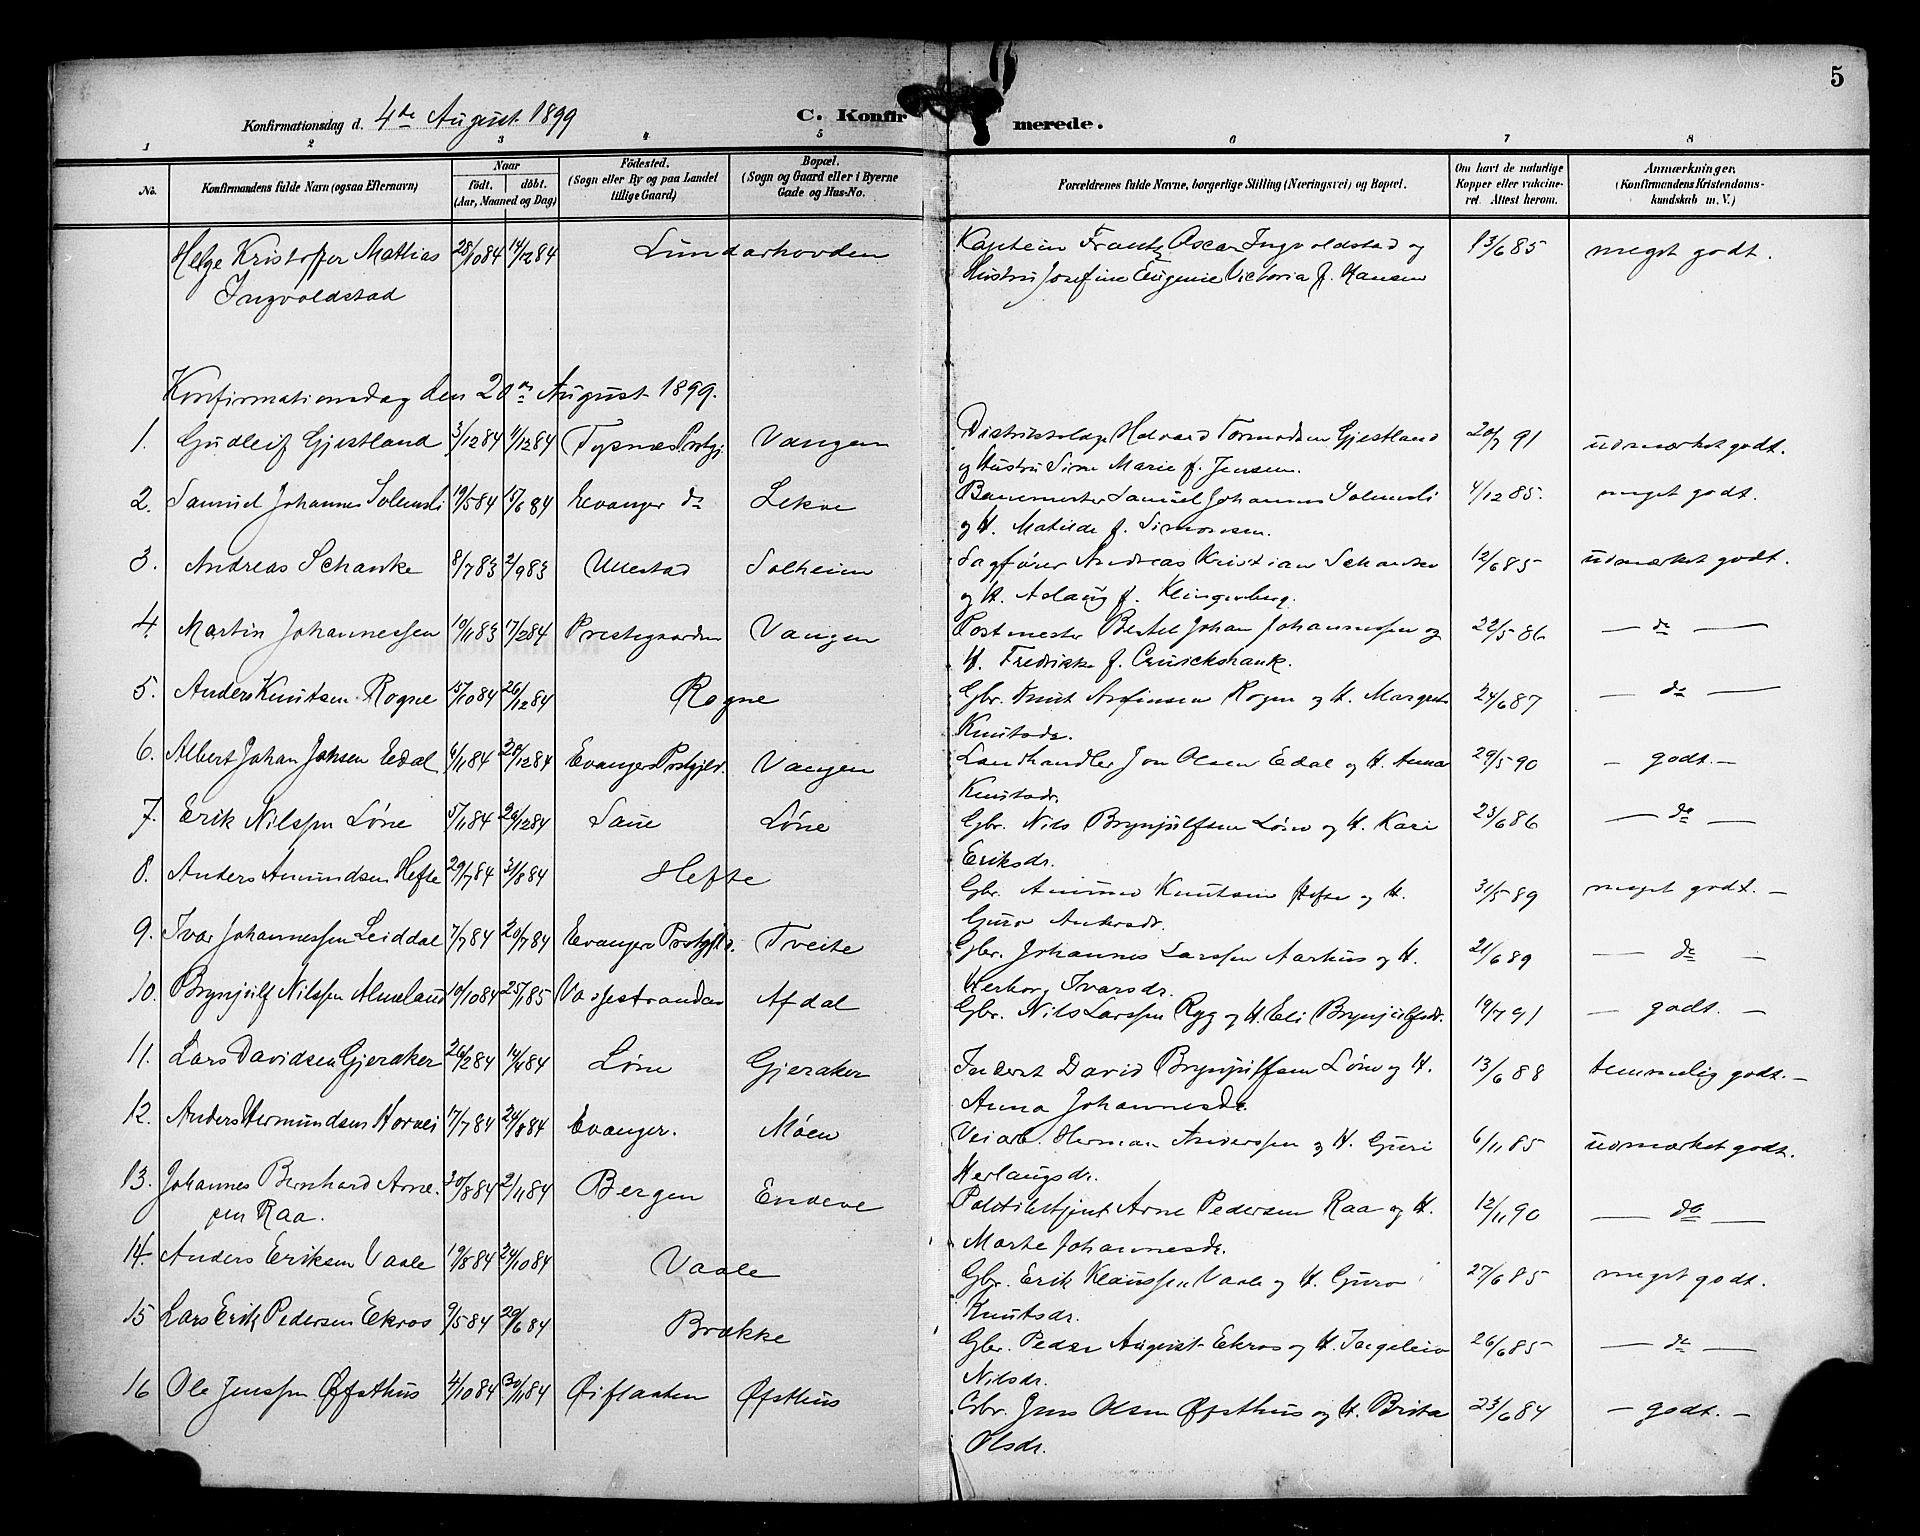 5
Konfirmationsdag d. 4de August 1899
C. Konfir merede.
1 2 3 4 5 6 7 8
No. Konfirmandens fulde Navn (ogsaa Efternavn) Naar födt. döbt. (Aar, Maaned og Dag) Födested. (Sogn eller By og paa Landet tillige Gaard) Bopæl. (Sogn og Gaard eller i Byerne Gade og Hus-No. Forældrenes fulde Navne, borgerlige Stilling (Næringsvei) og Bopæl. Om havt de naturlige Kopper eller vakcineret. Attest herom. Anmærkninger, (Konfirmandens Kristendomskundskab m. V.)
Helge Kristoffer Mathias 28/10 84 14/12 84 Lundarhovden Kaptein Frantz Oscar Ingvoldstad og 13/6 85 meget godt.
Ingvoldstad Hustru Josefine Eugenie Victoria f. Hansen
Konfirmationsdag den 20de August 1899.
1. Gudleif Gjestland 3/12 84 11/12 84 Tysnæs Prstgj. Vangen Distriktslæge Halvard Tormodsen Gjestland 20/7 91 udmærket godt.
og Hustru Sine Marie f. Jensen.
2. Samuel Johannes Solemsli 19/5 84 15/6 84 Evanger do Lekve Banemester Samuel Johannes Solemsli 4/12 85. meget godt.
og H. Matilde f. Simonsen.
3. Andreas Schanke 8/7 83 2/9 83 Ullestad Solheim Sagfører Andreas Kristian Schanke 12/6 85 udmærket godt.
og H. Aslaug f. Klingenberg.
4. Martin Johannessen 10/11 83 17/2 84 Prestegaarden Vangen Postmester Bertel Johan Johannessen og 22/5 86 — do —
H. Fredrikke f. Cruickshank.
5. Anders Knutsen Rogne 15/10 84 26/12 84 Rogne Gbr. Knut Arfinsen Rogne og H. Margreta 24/6 87 — do —
Knutsdr.
6. Albert Johan Johsen Edal 6/11 84 28/12 84 Evangers Prstgjld. Vangen Landhandler Jon Olsen Edal og H. Anna 29/5 90 — godt. —
Knutsdr.
7. Erik Nilssen Løne 5/11 84 26/12 84 Saue Løne Gbr. Nils Brynjulfsen Løne og H. Kari 23/6 86 — do —
Eriksdr.
8. Anders Amundsen Hefte 29/7 84 31/8 84 Hefte Gbr. Amund Knutsen Hefte og H. 31/5 89 meget godt. —
Guro Andersdr.
9. Ivar Johannessen Leiddal 7/7 84 20/7 84 Evangers Prstgjld. Tveite Gbr. Johannes Larssen Aarhus og H. 21/6 89 — do —
Herborg Ivarsdr.
10. Brynjulf Nilssen Almeland 10/10 84 25/1 85 Vossestranden Afdal Gbr. Nils Larssen Ryg og H. Eli Brynjulfsdr. 19/7 91 — godt. —
11. Lars Davidsen Gjeraker 26/2 84 14/4 84 Løne Gjeraker Inderst David Brynjulfsen Løne og H. 13/6 88 temmelig godt. —
Anna Johannesdr.
12. Anders Hermundsen Horvei 17/7 84 24/8 84 Evanger. Møen Veiarb. Herman Anderssen og H. Guri 6/11 85 udmærket godt.
Herlaugsdr.
13. Johannes Bernhard Arne- 30/8 84 2/11 84 Bergen Endeve Politibetjent Arne Pedersen Raa og H. 12/11 90 — do —
sen Raa. Marte Johannesdr.
14. Anders Eriksen Vaale 19/8 84 24/10 84 Vaale Gbr. Erik Klaussen Vaale og H. Guro 27/6 85 meget godt.
Knutsdr.
15 Lars Erik Pedersen Ekros 9/5 84 29/6 84 Brække Gbr. Peder August Ekros og H. Ingeleiv 26/6 85 — do —
Nilsdr.
16 Ole Jenssen Øfsthus 4/10 84 30/11 84 Øiflaaten Øfsthus Gbr. Jens Olsen Øfsthus og H. Brita 23/6 84 — godt. —
Olsdr.